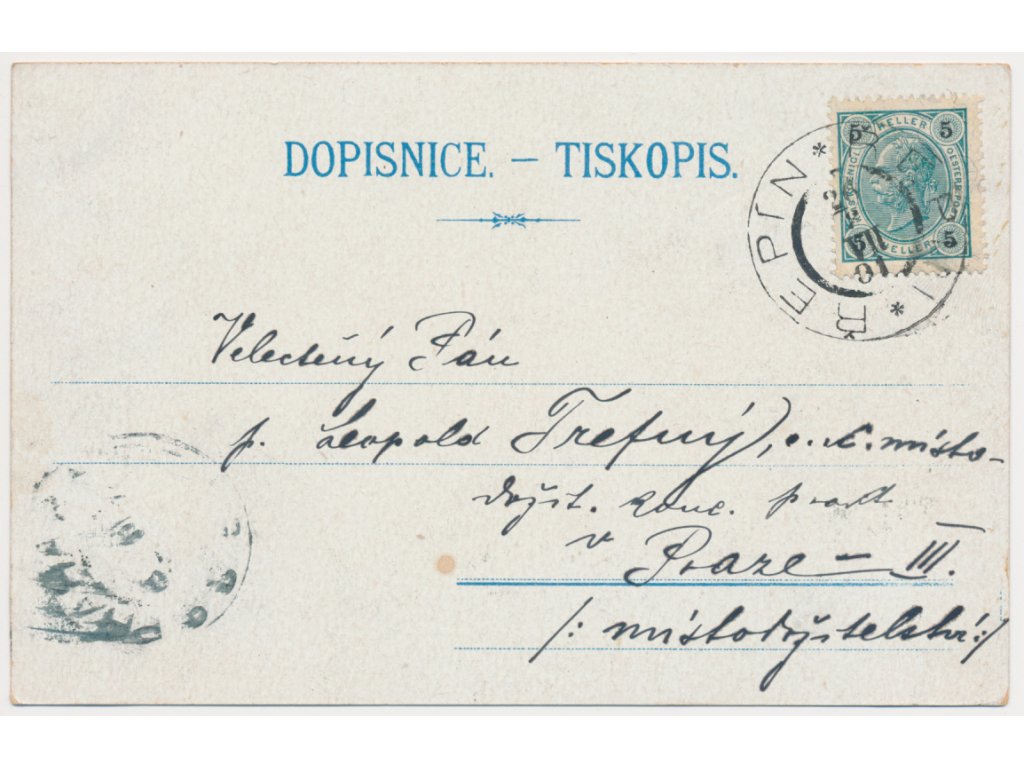 DOPISNICE. – TISKOPIS.
5 HELLER 5
5 HELLER 5
* ŘEPÍN *
VII
01
Velectěný Pán
p. Leopold Trefný, c. k. místo-
držit. konc. prakt
v Praze – III.
/: místodržitelství :/